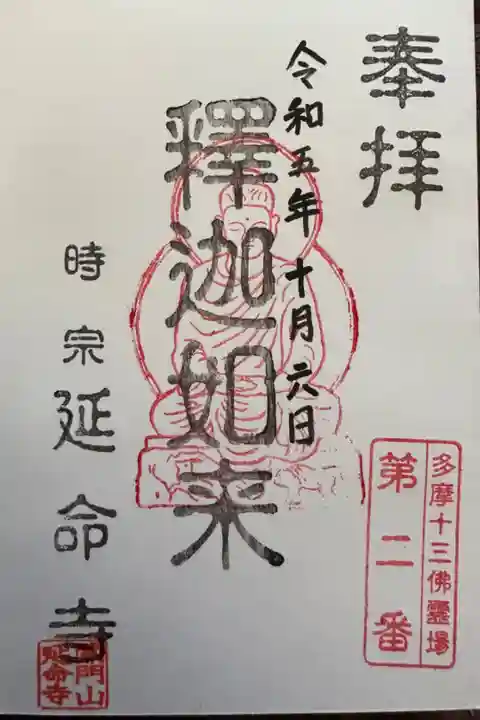 奉拝
多摩十三佛霊場
第二番
令和五年十月六日
釋迦如来
時宗
延命寺
門山
延命寺